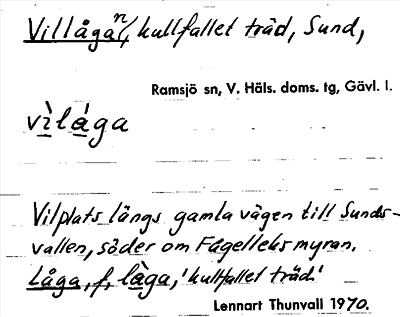 Villågan, kullfallet träd, Sund,
Ramsjö sn, V. Häls. doms. tg, Gävl. l.
vìlåga
Vilplats längs gamla vägen till Sunds-
vallen, söder om Fågelleksmyran.
Låga, f, låga, 'kullfallet träd'
Lennart Thunvall 1970.